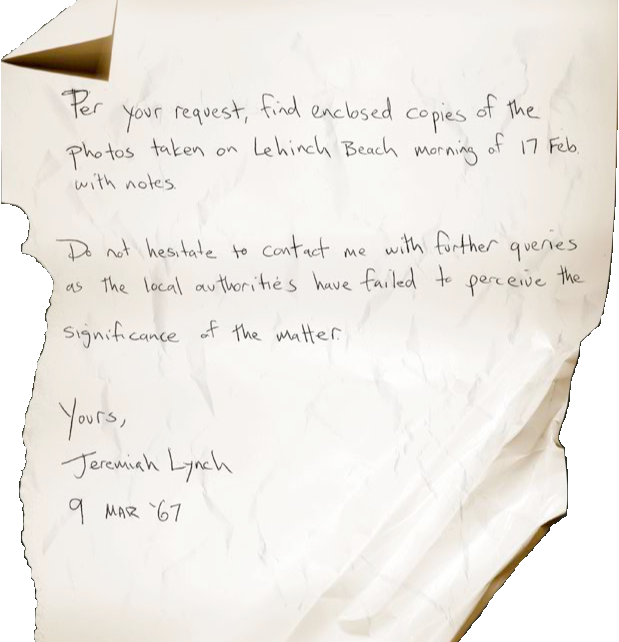 Per your request, find enclosed copies of the
photos taken on Lehinch Beach morning of 17 Feb.
with notes.
Do not hesitate to contact me with further queries
as the local authorities have failed to perceive the
significance of the matter.
Yours,
Jeremiah Lynch
9 MAR '67